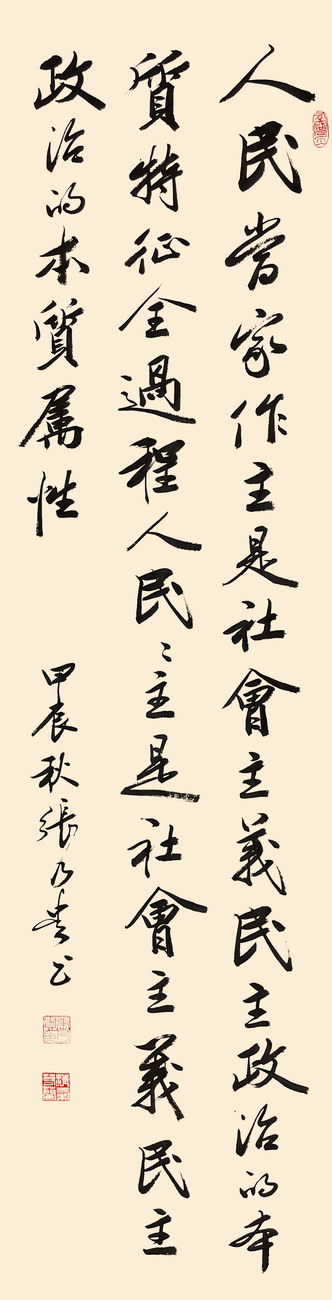 人民當家作主是社會主義民主政治的本
質特征全過程人民〻主是社會主義民主
政治的本質属性
甲辰秋張乃貴書